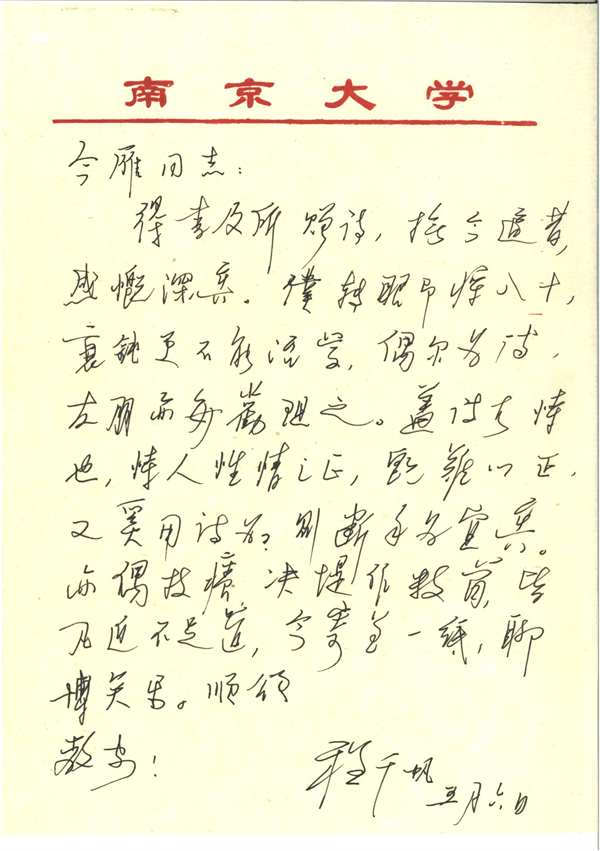 南京大学
今雁同志：
得書及所赠诗，抚今追昔，
感慨深矣。僕转眼即将八十，
衰钝更不能治学，偶尔为诗，
友朋亦每勸阻之。蓋诗者持
也，持人性情之正，既難以正，
又奚用诗为？则断手为宜矣。
亦偶技癢，决堤作数首，皆
凡近不足道，今寄呈一纸，聊
博笑乐。顺颂
教安！
程千帆
五月六日